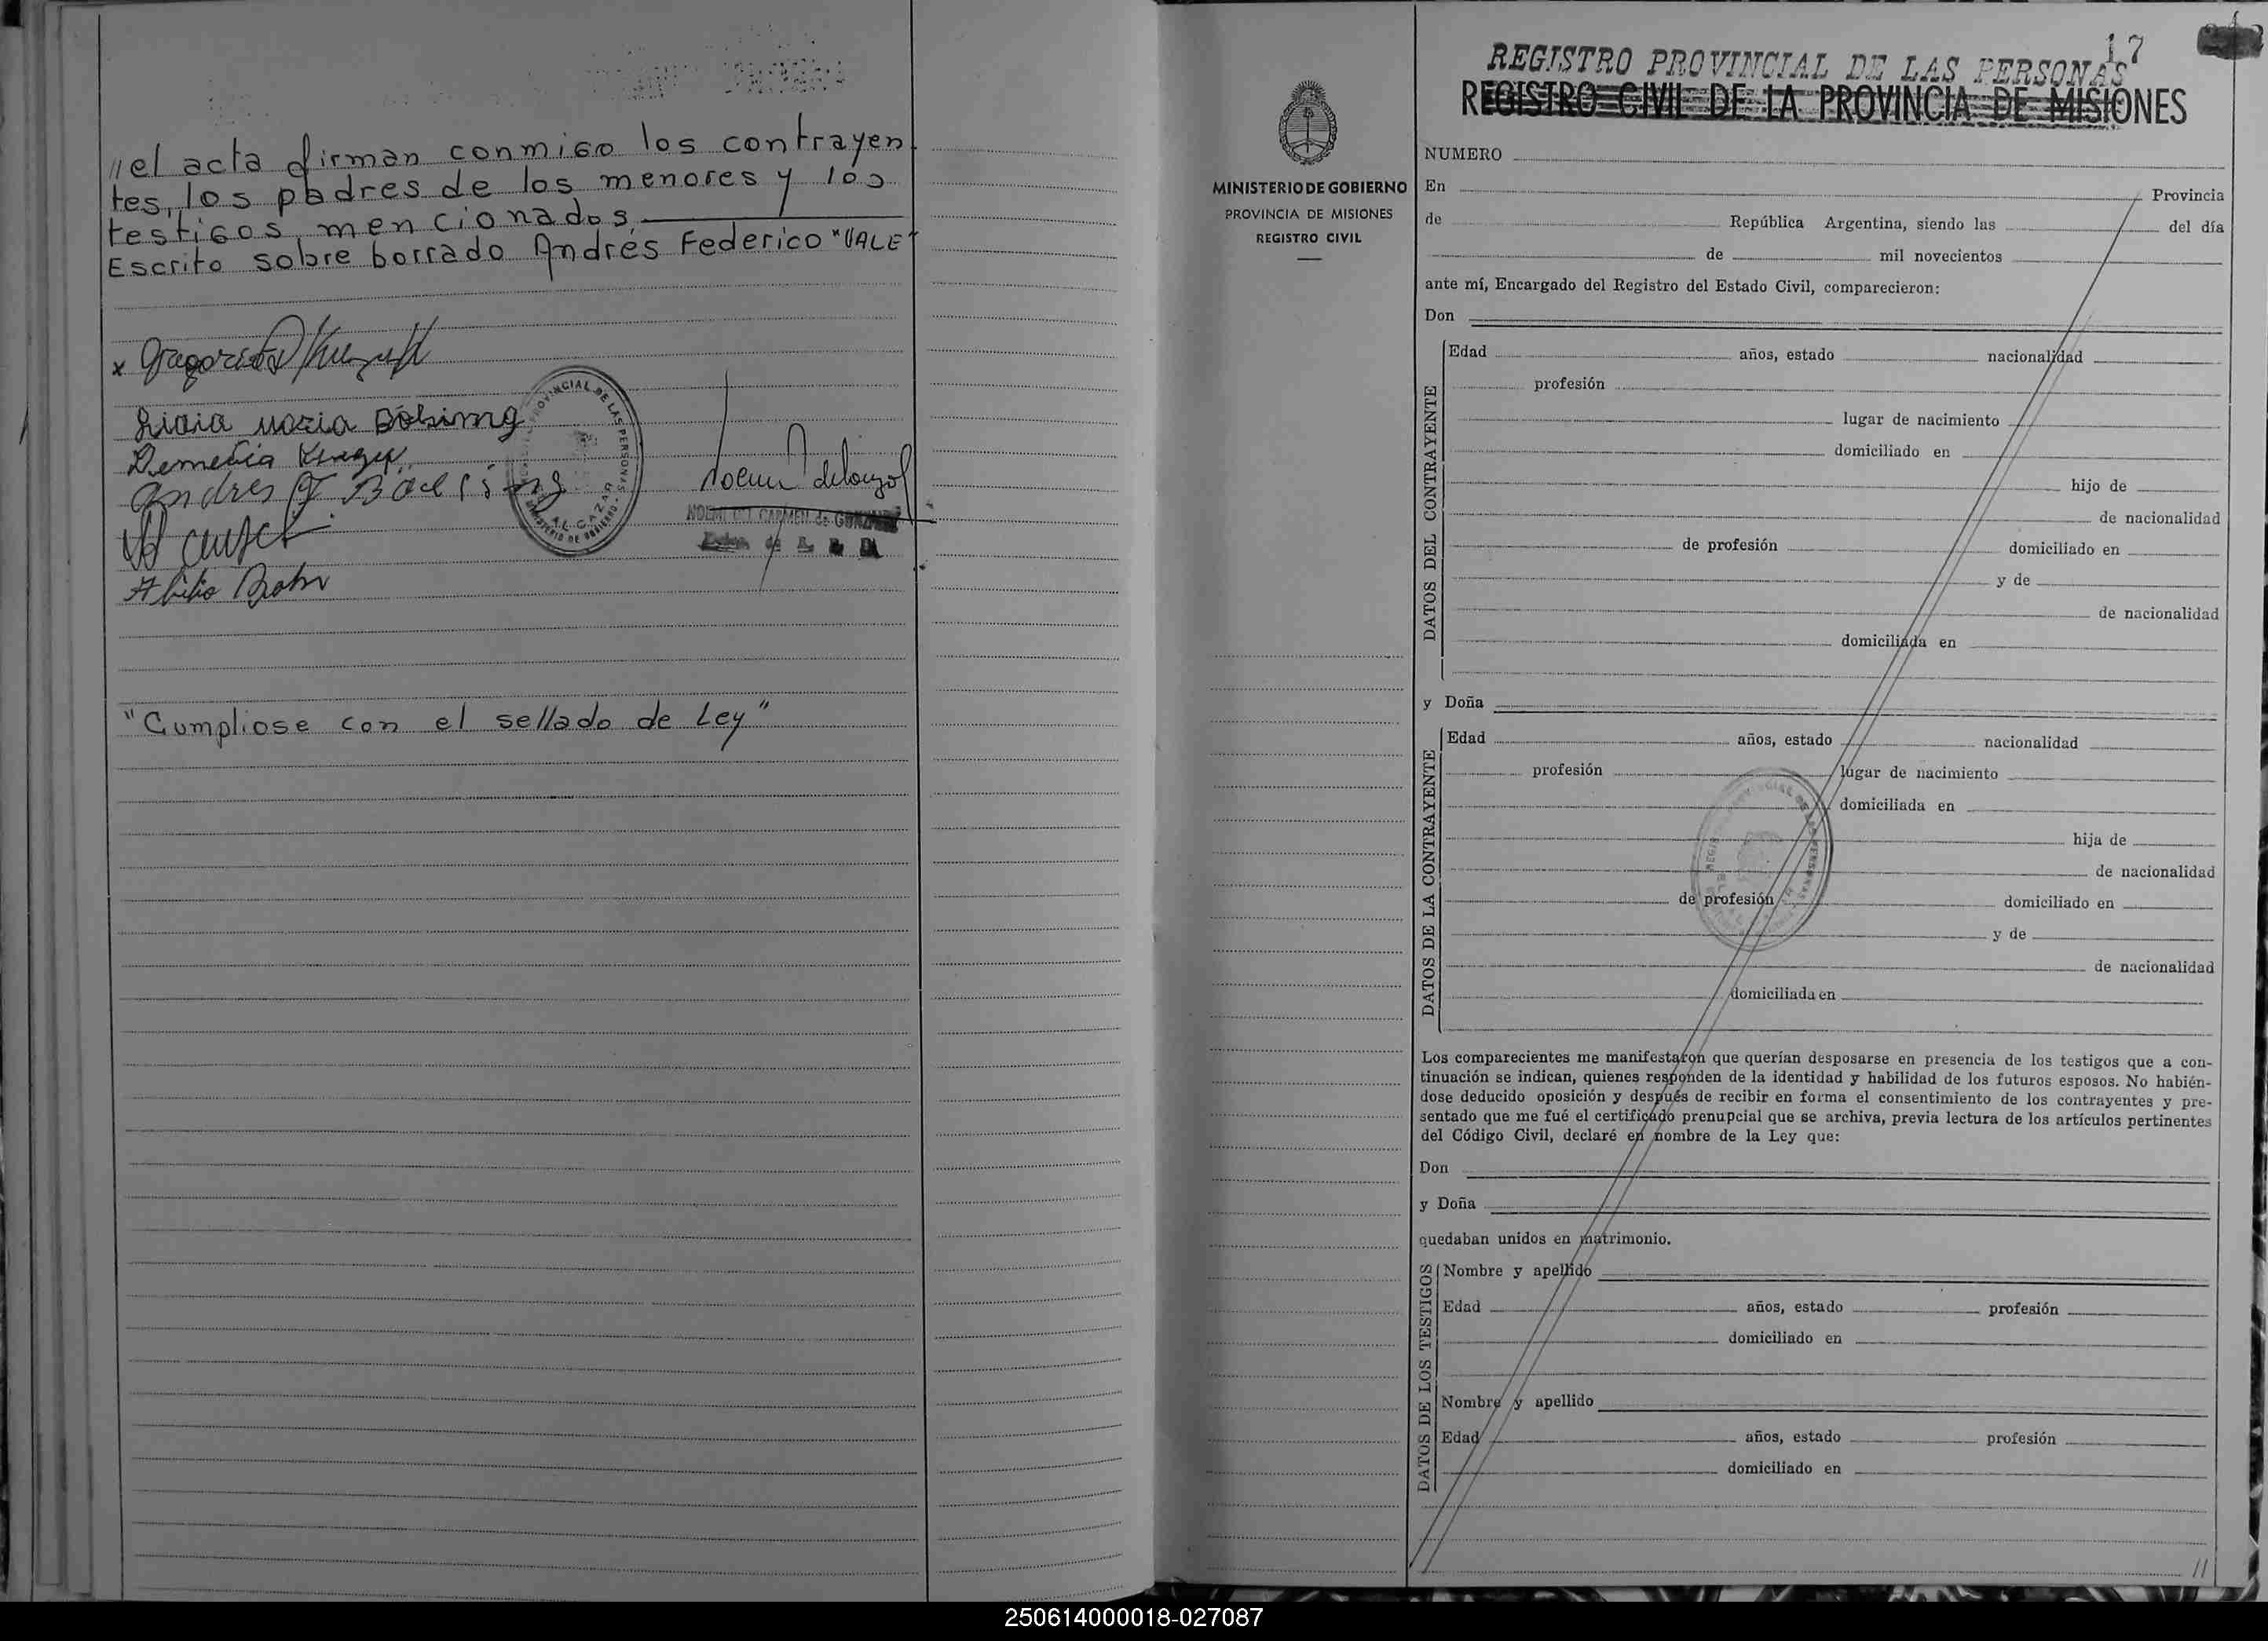 //el acta firman conmigo los contrayen
tes, los padres de los menores y los
testigos mencionados.
Escrito sobre borrado Andrés Federico "VALE"
x Gregorio
Lidia Maria
Andres F.
REGISTRO PROVINCIAL DE LAS PERSONAS
ALCAZAR
MINISTERIO DE GOBIERNO
NOEMI DEL CARMEN de
"Cumpliose con el sellado de Ley"
17
REGISTRO PROVINCIAL DE LAS PERSONAS
REGISTRO CIVIL DE LA PROVINCIA DE MISIONES
MINISTERIO DE GOBIERNO
PROVINCIA DE MISIONES
REGISTRO CIVIL
NUMERO
En Provincia
de República Argentina, siendo las del día
de mil novecientos
ante mí, Encargado del Registro del Estado Civil, comparecieron:
Don
DATOS DEL CONTRAYENTE
Edad años, estado nacionalidad
profesión
lugar de nacimiento
domiciliado en
hijo de
de nacionalidad
de profesión domiciliado en
y de
de nacionalidad
domiciliada en
y Doña
DATOS DE LA CONTRAYENTE
Edad años, estado nacionalidad
profesión lugar de nacimiento
domiciliada en
hija de
de nacionalidad
de profesión domiciliado en
y de
de nacionalidad
domiciliada en
Los comparecientes me manifestaron que querían desposarse en presencia de los testigos que a con-
tinuación se indican, quienes responden de la identidad y habilidad de los futuros esposos. No habién-
dose deducido oposición y después de recibir en forma el consentimiento de los contrayentes y pre-
sentado que me fué el certificado prenupcial que se archiva, previa lectura de los artículos pertinentes
del Código Civil, declaré en nombre de la Ley que:
Don
y Doña
quedaban unidos en matrimonio.
DATOS DE LOS TESTIGOS
Nombre y apellido
Edad años, estado profesión
domiciliado en
Nombre y apellido
Edad años, estado profesión
domiciliado en
//
250614000018-027087